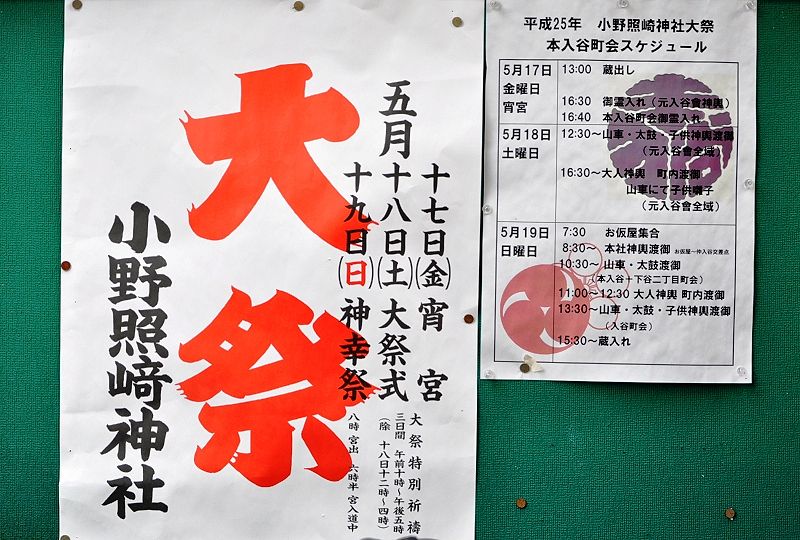 五月
十七日(金)宵宮
十八日(土)大祭式
十九日(日)神幸祭
大祭特別祈禱
三日間 午前十時～午後五時
(除 十八日十二時～四時)
八時 宮出 六時半 宮入道中
大祭
小野照崎神社
平成25年 小野照崎神社大祭
本入谷町会スケジュール
5月17日
金曜日
宵宮
13:00 蔵出し
16:30 御霊入れ(元入谷會神輿)
16:40 本入谷町会御霊入れ
5月18日
土曜日
12:30～山車・太鼓・子供神輿渡御
(元入谷會全域)
16:30～大人神輿 町内渡御
山車にて子供囃子
(元入谷會全域)
5月19日
日曜日
7:30 お仮屋集合
8:30～ 本社神輿渡御 お仮屋～仲入谷交差点
10:30～ 山車・太鼓渡御
(本入谷＋下谷二丁目町会)
11:00～12:30 大人神輿 町内渡御
13:30～山車・太鼓・子供神輿渡御
(入谷町会)
15:30～蔵入れ